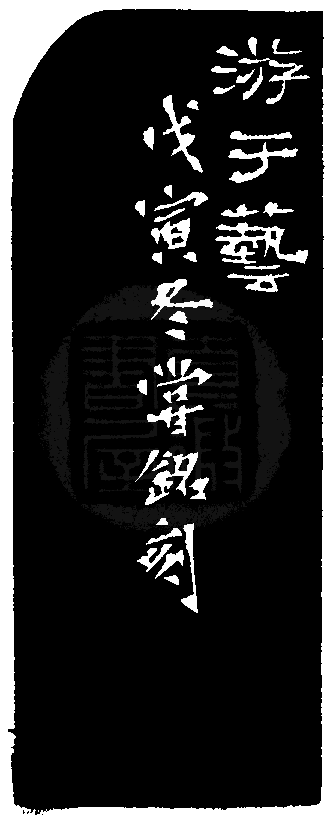 游于藝
戊寅冬甞銘刻